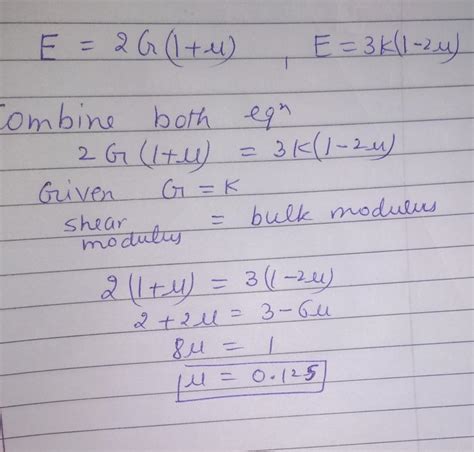 E = 2G(1+μ) , E = 3K(1-2μ)
Combine both eqⁿ
2G(1+μ) = 3K(1-2μ)
Given G = K
shear modulus = bulk modulus
2(1+μ) = 3(1-2μ)
2+2μ = 3-6μ
8μ = 1
μ = 0.125